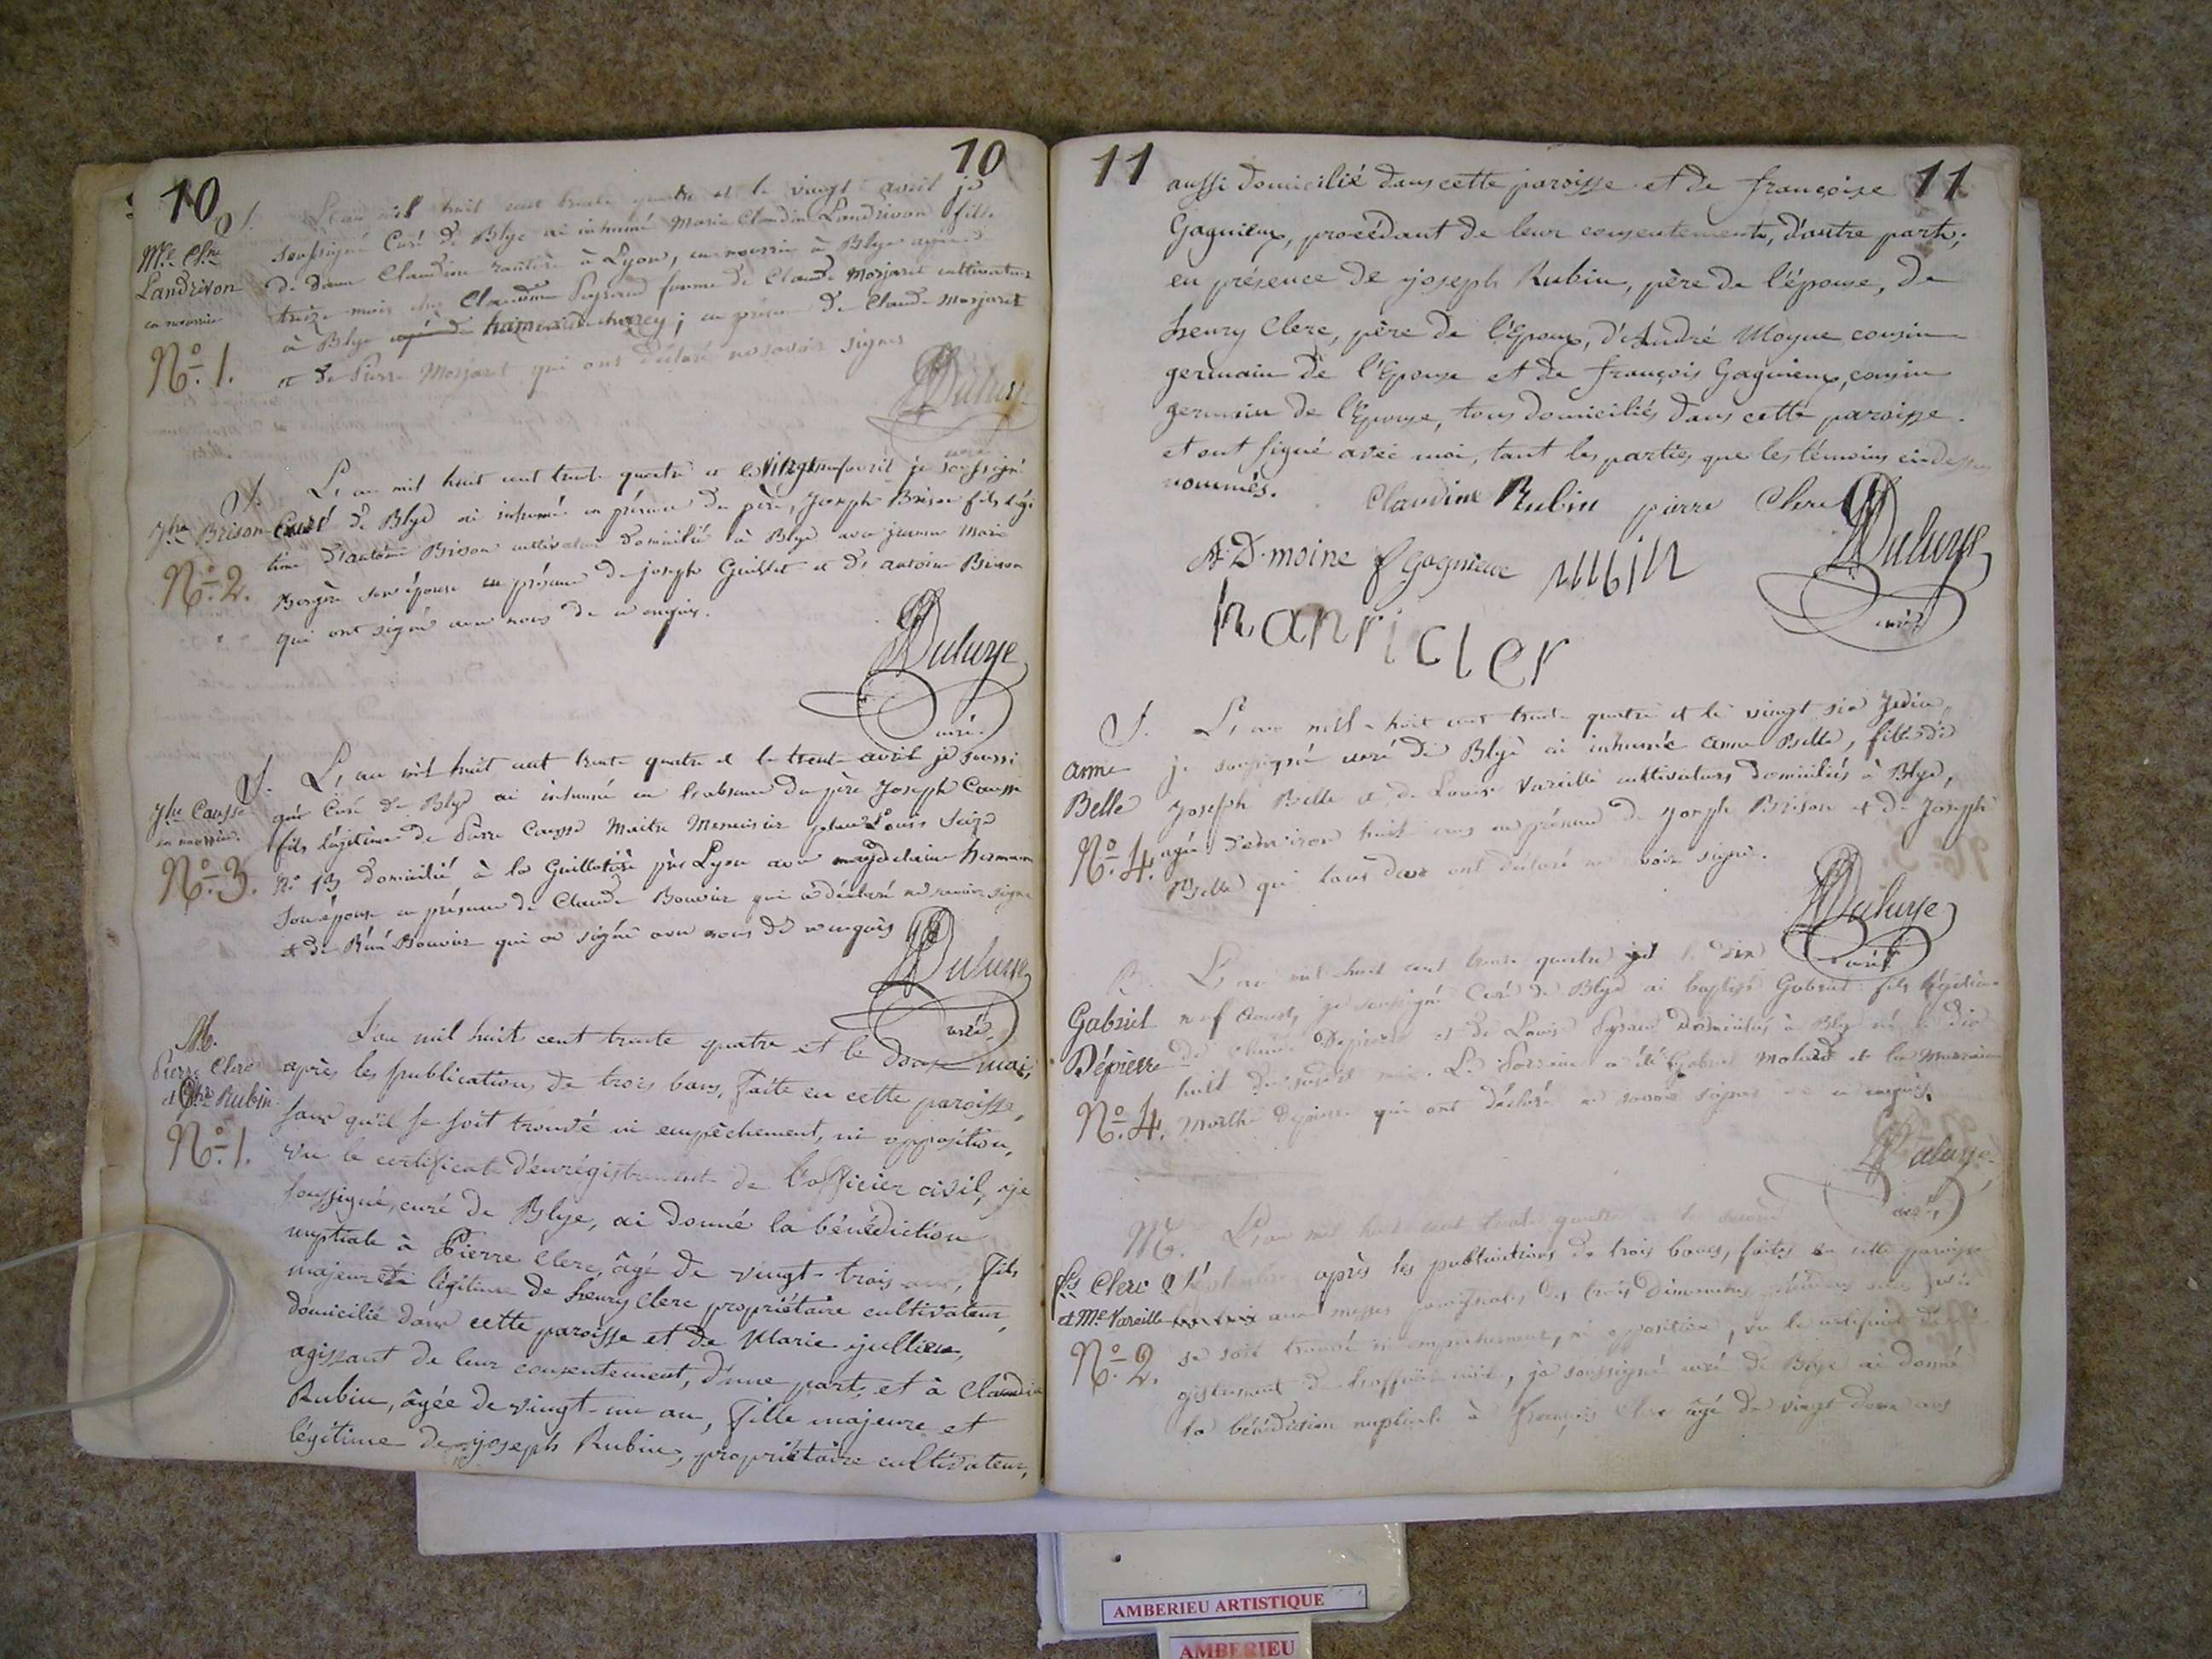 10
10
S. L'an mil huit cent trente quatre et le vingt avril je
Mie Cline soussigné Curé de Blye ai inhumé Marie Claudine Landrivon fille
Landrivon de Dame Claudine rentière à Lyon, en nourrice à Blye agée de
en nourrice treize mois chez Claudine Peyraud femme de Claude Morjaret cultivateur
à Blye hameau de ; en présence de Claude Morjaret
No. 1. et de Pierre Morjaret qui ont déclaré ne savoir signer
Duluye
S. L'an mil huit cent trente quatre et le vingt neuf avril je soussigné
Jph Brison Curé de Blye ai inhumé en présence du père, Joseph Brison fils légi
time d'antoine Brison cultivateur domicilié à Blye avec jeanne Marie
No. 2. Bergère son épouse en présence de joseph Guillet et d'antoine Brison
qui ont signé avec nous de ce enquis.
Duluye
curé.
S. L'an mil huit cent trente quatre et le trente avril je soussi
Jph Causse gné Curé de Blye ai inhumé en l'absence du père Joseph Causse
en nourrice. fils légitime de Pierre Causse Maitre Menuisier place Louis Seize
No. 3. No 13 domicilié à la Guillotière près Lyon avec magdelaine hermann
son épouse en présence de Claude Bouvier qui a déclaré ne savoir signer
et de Réné Bouvier qui a signé avec nous de ce enquis
Duluye
curé.
M. L'an mil huit cent trente quatre et le douze mai,
Pierre Clerc après les publications de trois bans, faite en cette paroisse,
et Cline Rubin sans qu'il se soit trouvé ni empêchement, ni opposition,
No. 1. vu le certificat d'enrégistrement de l'officier civil, je
soussigné, curé de Blye, ai donné la bénédiction
nuptiale à Pierre Clerc, âgé de vingt-trois ans, fils
majeur et légitime de henry Clerc propriétaire cultivateur,
domicilié dans cette paroisse et de Marie jullien,
agissant de leur consentement, d'une part, et à Claudine
Rubin, âgée de vingt-un an, fille majeure et
légitime de joseph Rubin, propriétaire cultivateur,
11
11
aussi domicilié dans cette paroisse et de françoise
Gagnieux, procédant de leur consentement, d'autre part;
en présence de joseph Rubin, père de l'épouse, de
henry Clerc, père de l'Epoux, d'André Moyne cousin
germain de l'Epouse et de françois Gagnieux, cousin
germain de l'Epouse, tous domiciliés dans cette paroisse.
et ont signé avec moi, tant les parties que les témoins ci-dessus
nommés. Claudine Rubin pierre Clerc
A. D. moine f gagnieux rubin Duluye
hanri cler curé
S. L'an mil huit cent trente quatre et le vingt six
anne je soussigné curé de Blye ai inhumée anne Belle, fille de
Belle Joseph Belle et de Louise Vareille cultivateurs domiciliés à Blye,
No. 4. agée d'environ huit ans en présence de Joseph Brison et de Joseph
Belle qui tous deux ont déclaré ne savoir signer.
Duluye
curé
B. L'an mil huit cent trente quatre et le dix
Gabriel neuf aoust, je soussigné Curé de Blye ai baptisé Gabriel fils légitime
Dépierre de Claude Depierre et de Louise Peyraud domiciliés à Blye né le dix
huit du susdit mois. Le Parrain a été Gabriel Molard et la Marraine
No. 4. Marthe Depierre qui ont déclaré ne savoir signer de ce enquis.
Duluye
curé
M. L'an mil huit cent trente quatre et le second
fs Clerc septembre après les publications de trois bancs, faites en cette paroisse
et Mie Vareille aux messes paroissiales des trois Dimanches
No. 2. se soit trouvé ni empêchement, ni opposition, vu le certificat d'enré
gistrement de l'officier civil, je soussigné curé de Blye ai donné
la bénédiction nuptiale à françois Clerc âgé de vingt deux ans
AMBERIEU ARTISTIQUE
AMBERIEU